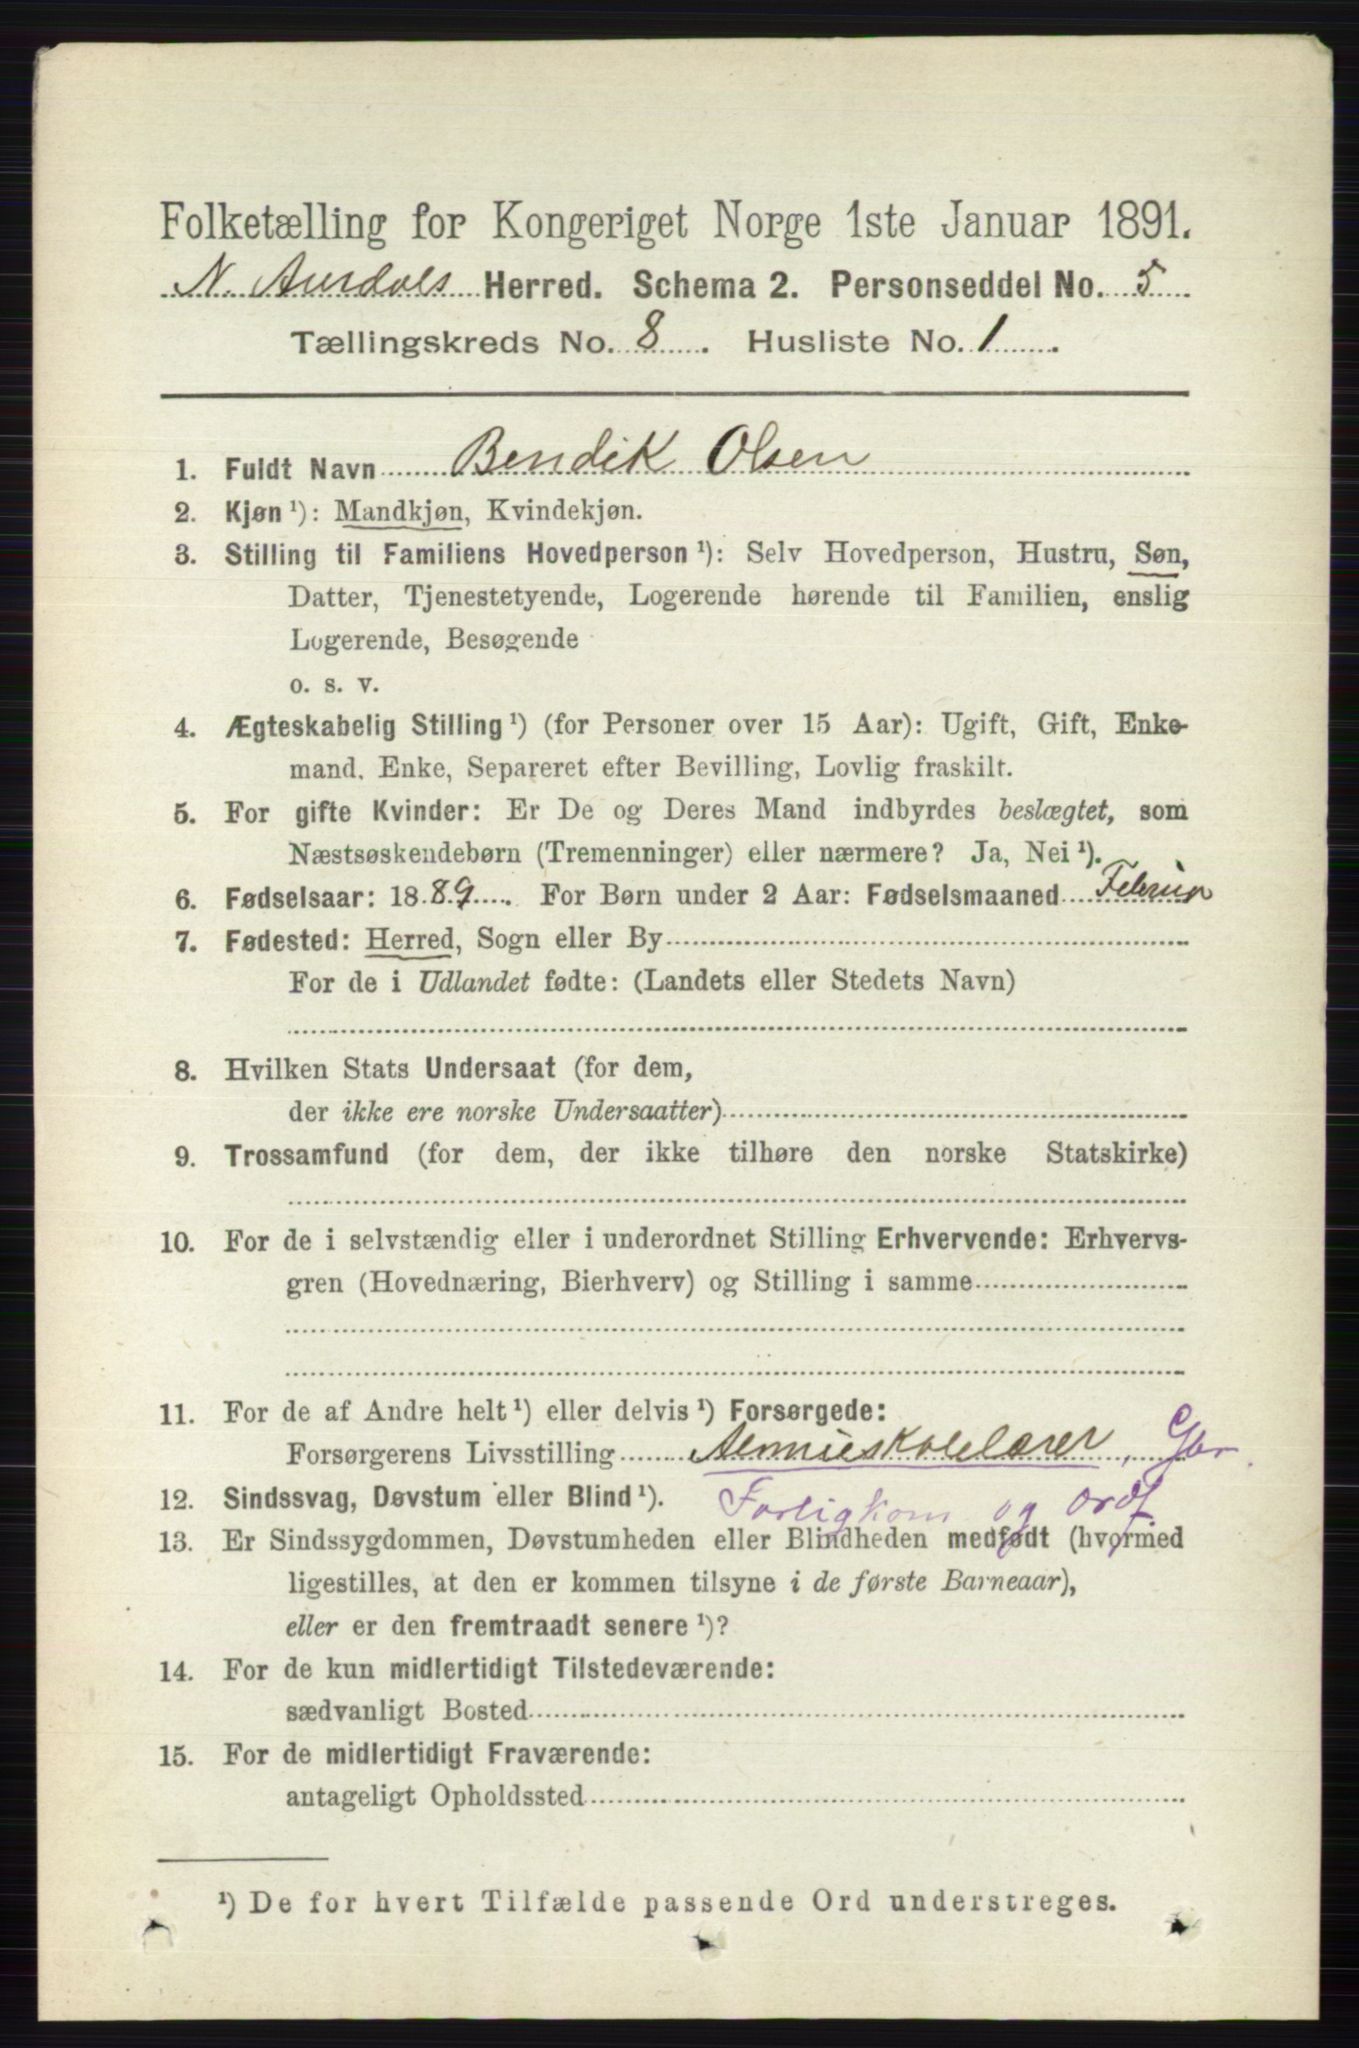 Folketælling for Kongeriget Norge 1ste Januar 1891.
N. Aurdals Herred. Schema 2. Personseddel No. 5
Tællingskreds No. 8. Husliste No. 1.
1. Fuldt Navn Bendik Olsen
2. Kjøn ¹): Mandkjøn, Kvindekjøn.
3. Stilling til Familiens Hovedperson ¹): Selv Hovedperson, Hustru, Søn,
Datter, Tjenestetyende, Logerende hørende til Familien, enslig
Logerende, Besøgende
o. s. v.
4. Ægteskabelig Stilling ¹) (for Personer over 15 Aar): Ugift, Gift, Enke-
mand, Enke, Separeret efter Bevilling, Lovlig fraskilt.
5. For gifte Kvinder: Er De og Deres Mand indbyrdes beslægtet, som
Næstsøskendebørn (Tremenninger) eller nærmere? Ja, Nei ¹).
6. Fødselsaar: 1889. For Børn under 2 Aar: Fødselsmaaned Februar
7. Fødested: Herred, Sogn eller By
For de i Udlandet fødte: (Landets eller Stedets Navn)
8. Hvilken Stats Undersaat (for dem,
der ikke ere norske Undersaatter)
9. Trossamfund (for dem, der ikke tilhøre den norske Statskirke)
10. For de i selvstændig eller i underordnet Stilling Erhvervende: Erhvervs-
gren (Hovednæring, Bierhverv) og Stilling i samme
11. For de af Andre helt ¹) eller delvis ¹) Forsørgede:
Forsørgerens Livsstilling Almueskolelærer, Gbr.
12. Sindssvag, Døvstum eller Blind ¹). Forligkom og Ordf
13. Er Sindssygdommen, Døvstumheden eller Blindheden medfødt (hvormed
ligestilles, at den er kommen tilsyne i de første Barneaar),
eller er den fremtraadt senere ¹)?
14. For de kun midlertidigt Tilstedeværende:
sædvanligt Bosted
15. For de midlertidigt Fraværende:
antageligt Opholdssted
¹) De for hvert Tilfælde passende Ord understreges.